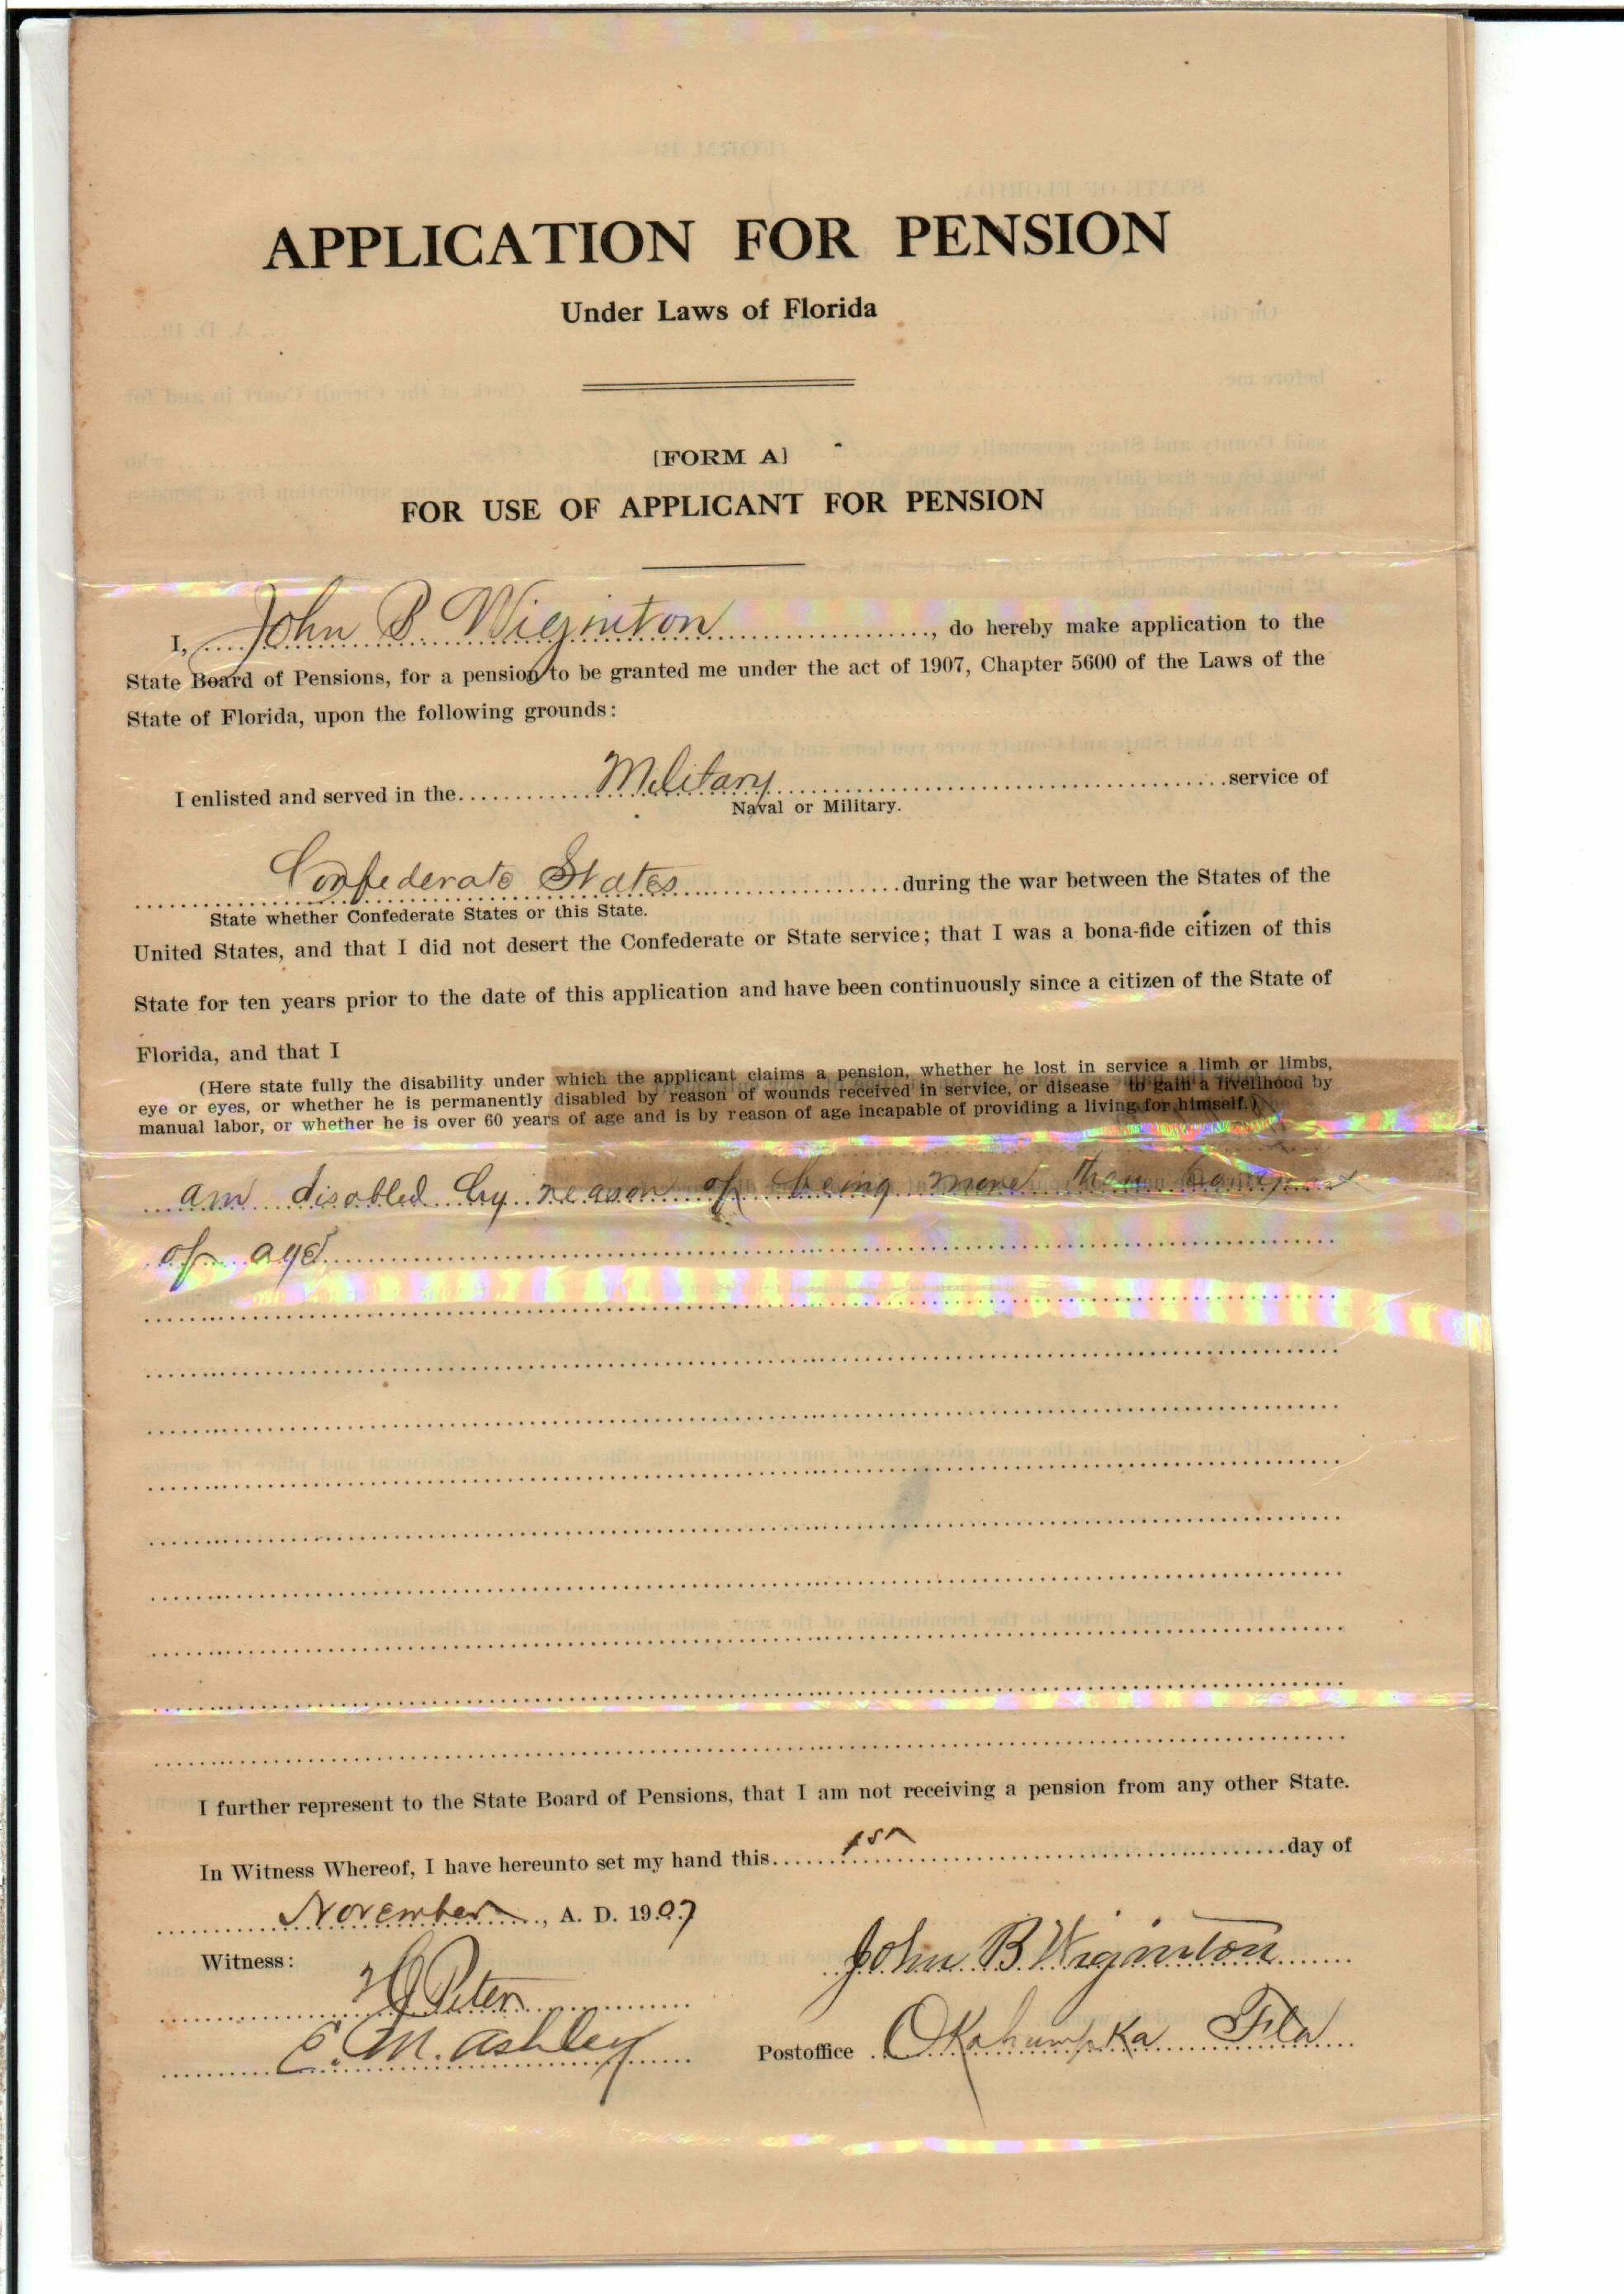 APPLICATION FOR PENSION
Under Laws of Florida
[FORM A]
FOR USE OF APPLICANT FOR PENSION
I, John B. Wiginton, do hereby make application to the
State Board of Pensions, for a pension to be granted me under the act of 1907, Chapter 5600 of the Laws of the
State of Florida, upon the following grounds:
I enlisted and served in the Military service of
Naval or Military.
Confederate States during the war between the States of the
State whether Confederate States or this State.
United States, and that I did not desert the Confederate or State service; that I was a bona-fide citizen of this
State for ten years prior to the date of this application and have been continuously since a citizen of the State of
Florida, and that I
(Here state fully the disability under which the applicant claims a pension, whether he lost in service a limb or limbs,
eye or eyes, or whether he is permanently disabled by reason of wounds received in service, or disease to gain a livelihood by
manual labor, or whether he is over 60 years of age and is by reason of age incapable of providing a living for himself.)
am disabled by reason of being more than
of age
I further represent to the State Board of Pensions, that I am not receiving a pension from any other State.
In Witness Whereof, I have hereunto set my hand this 1st day of
November, A. D. 1907
Witness:
John B. Wiginton
Peter
E. M. Ashley
Postoffice Okahumpka Fla